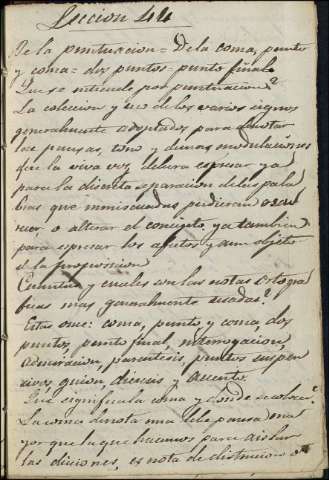 Leccion 44
De la puntuacion = De la coma, punto
y coma = dos puntos = punto final.
Que se entiende por puntuacion?
La coleccion y uso de los varios signos
generalmente adoptados para denotar
las pausas, tono y demas modulaciones
que la viva voz, debera espresar ya
para la discreta separacion de las pala
bras que
o alterar el concepto, ya tambien
para espresar los afectos y aun objeto
de la proposicion
Cuantas y cuales son las notas ortogra
ficas mas generalmente usadas?
Estas son: coma, punto y coma, dos
puntos, punto final, interrogacion,
admiracion, parentesis, puntos suspen
sivos, guion, dieresis y acento.
Que significa la coma y donde se coloca?
La coma denota una leve pausa ma
yor que la que hacemos para aislar
las diciones, es nota de distincion o